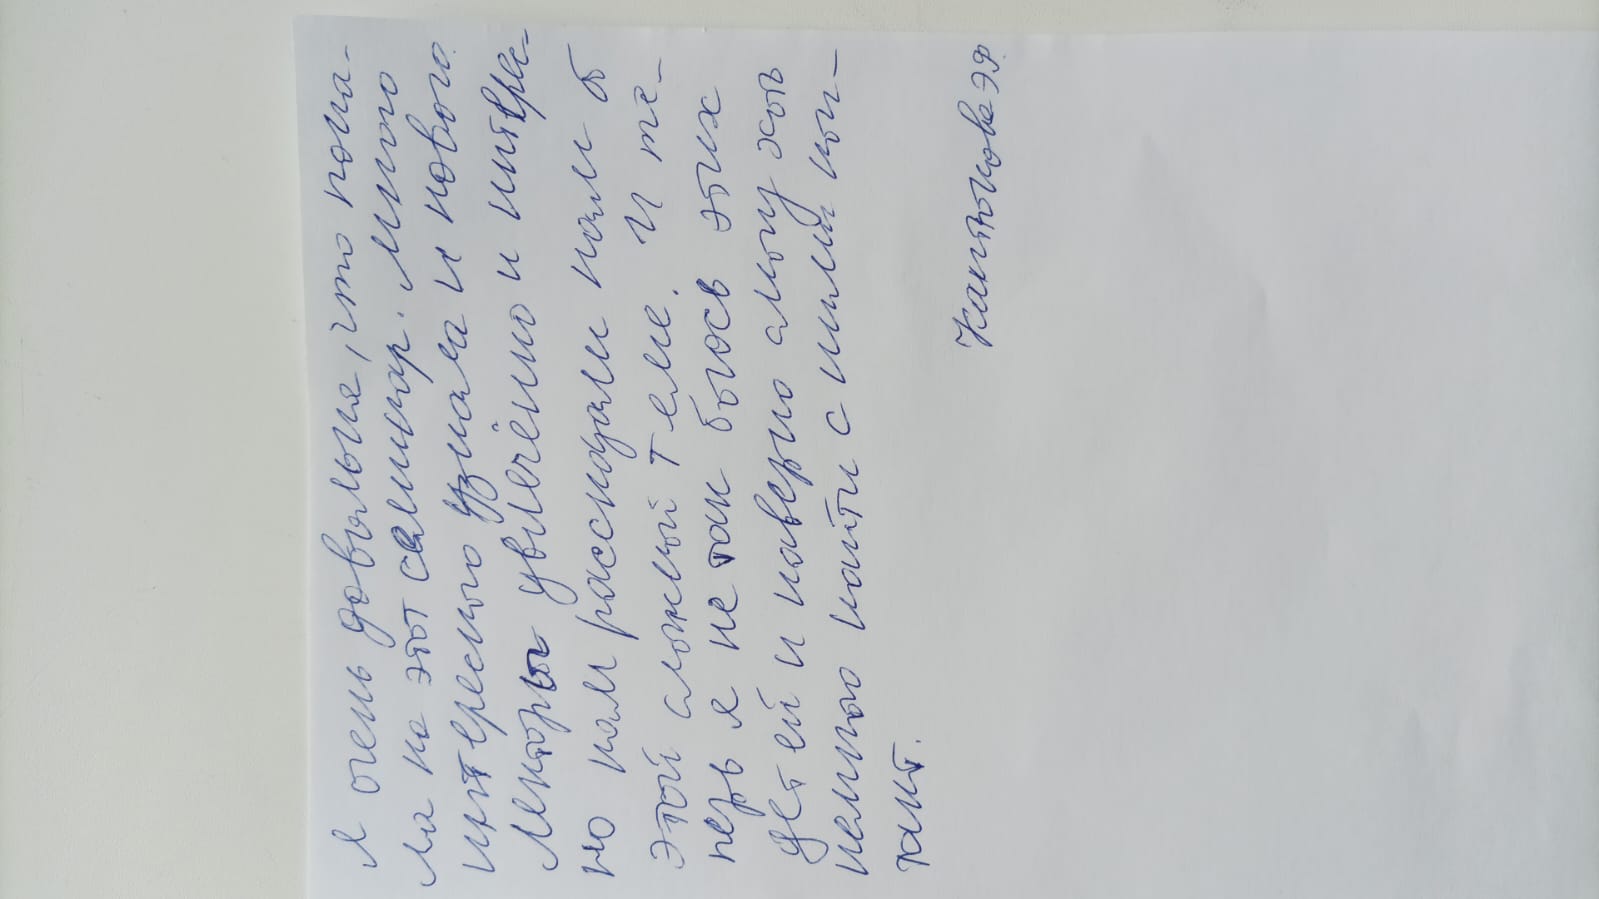 Я очень довольна, что попа-
ла на этот семинар. Много
интересного узнала и нового.
Лекторы увлечённо и интере-
но нам рассказали нам об
этой сложной теме. И те-
перь я не так боюсь этих
детей и наверно смогу хоть
немного найти с ними кон-
такт.